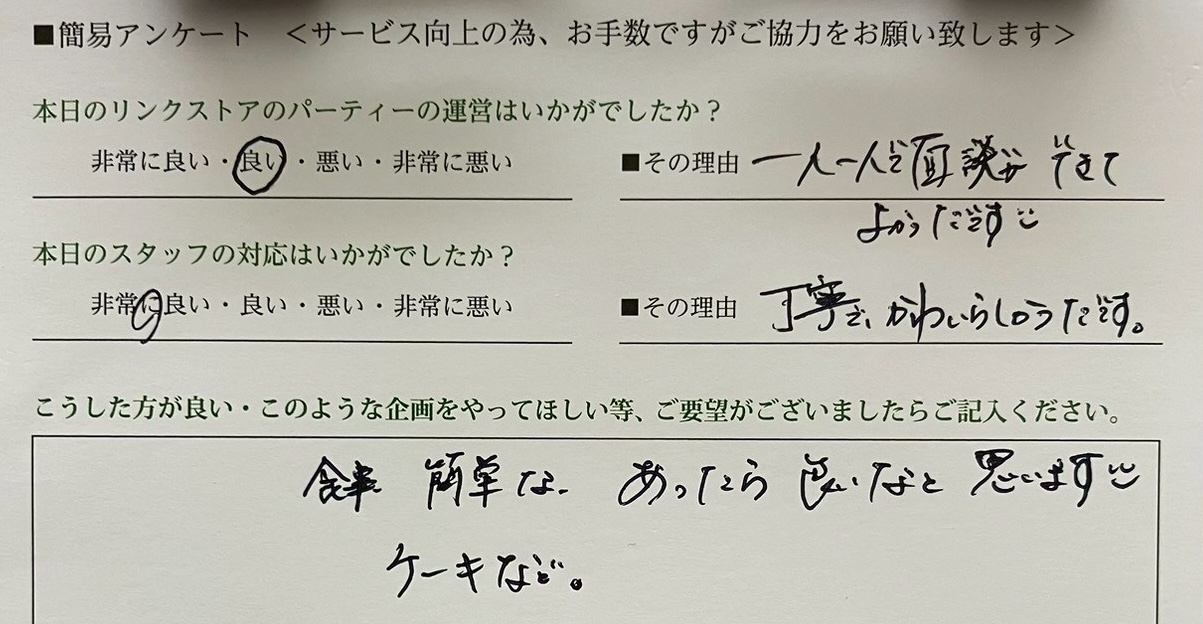 ■簡易アンケート <サービス向上の為、お手数ですがご協力をお願い致します>
本日のリンクストアのパーティーの運営はいかがでしたか？
非常に良い・良い・悪い・非常に悪い ■その理由 一人一人と面談ができて
よかったです
本日のスタッフの対応はいかがでしたか？
非常に良い・良い・悪い・非常に悪い ■その理由 丁寧で、かわいらしかったです。
こうした方が良い・このような企画をやってほしい等、ご要望がございましたらご記入ください。
食事 簡単な あったら 良いなと 思います
ケーキなど。